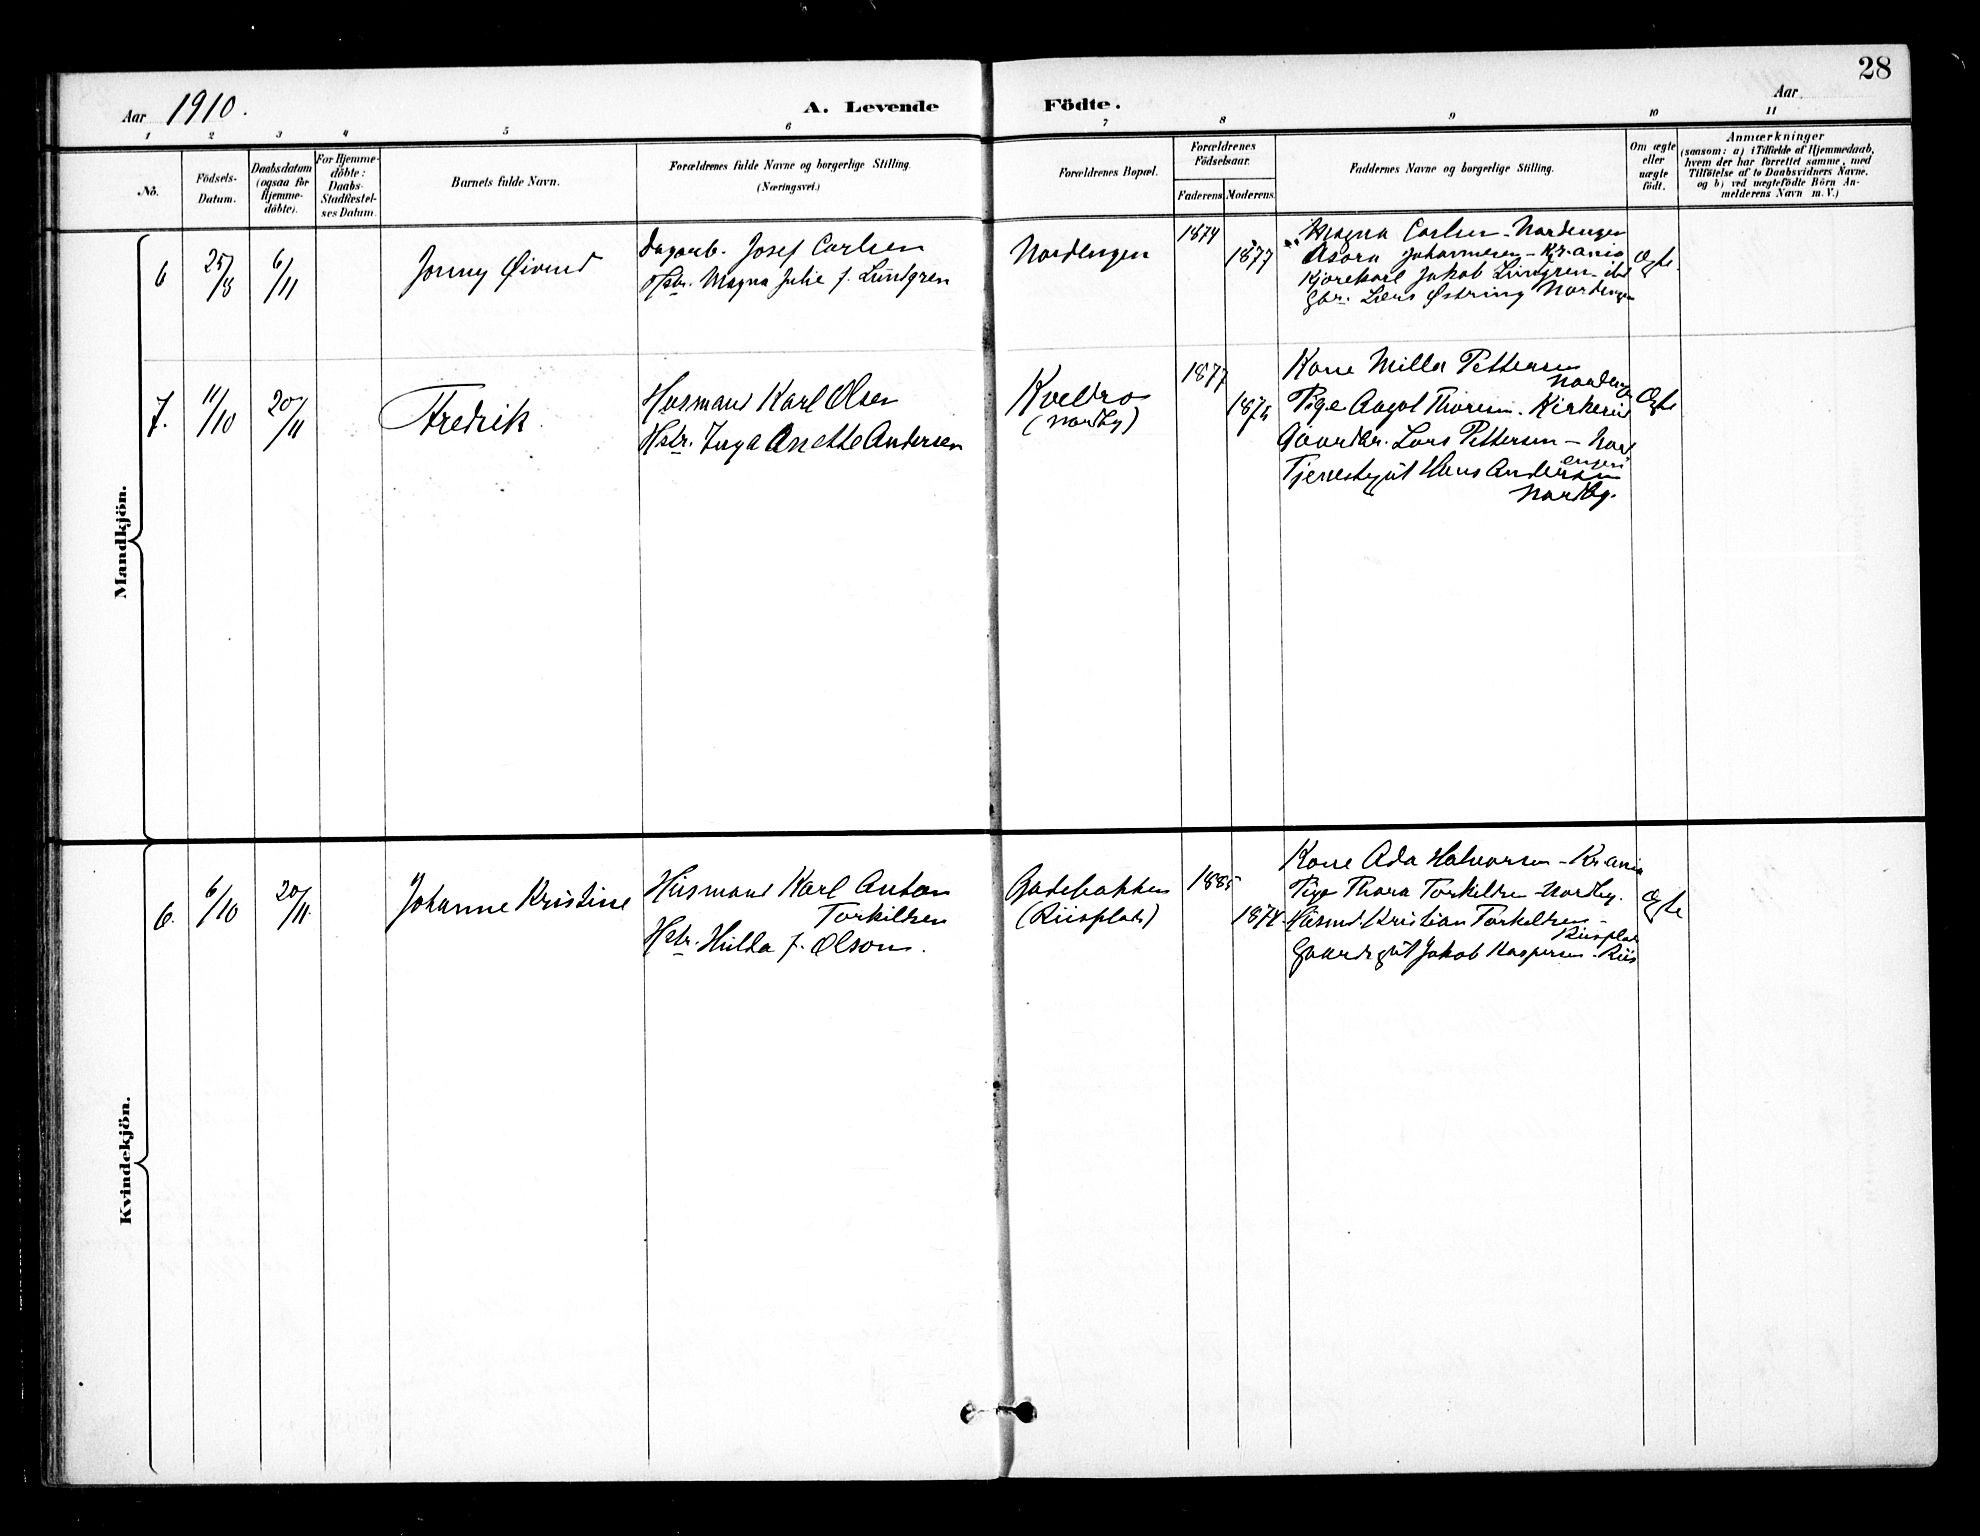 28
Aar 1910. A. Levende Födte. Aar
1 2 3 4 5 6 7 8 9 10 11
No.
Födsels-
Datum.
Daabsdatum
(ogsaa for
Hjemme-
döbte).
For Hjemme-
döbte:
Daabs-
Stadfæstel-
ses Datum.
Barnets fulde Navn.
Forældrenes fulde Navne og borgerlige Stilling.
(Næringsvei.)
Forældrenes Bopæl.
Forældrenes
Födselsaar.
Faderens Moderens
Faddernes Navne og borgerlige Stilling.
Om ægte
eller
uægte
födt.
Anmærkninger
(saasom: a) i Tilfælde af Hjemmedaab,
hvem der har forrettet samme, med
Tilföielse af to Daabsvidners Navne,
og b) ved uægtefödte Börn An-
melderens Navn m. V.)
Mandkjön.
6 25/8 6/11
Jonny Øivind
Dagarb. Josef Carlsen
Hstr. Magna Julie f. Lundgren
Nordengen
1874
1877
Magna Carlsen - Nordengen
Johannesen - Kr.ania
Kjørekarl Jakob Lundgren - ibd
Gbr. Lars Østring Nordengen
Ægte
7. 11/10 20/11
Fredrik
Husmand Karl Olsen
Hstr. Inga Anette Andersen
Kvebro
(Nordby)
1877
1875
Kone Milla Pettersen
Nordengen
Pige Aagot Thoresen - Kirkerud
Gaardbr. Lars Pettersen - Nord
engen
Tjenestegut Hans Andersen
Nordby.
Ægte
Kvindekjön.
6. 6/10 20/11
Johanne Kristine
Husmand Karl Anton
Torkildsen
Hstr. Hilda f. Olson.
Gadebakken
(Riisplads)
1885
1874
Kone Ada Halvorsen - Kr.ania
Pige Thora Torkildsen - Nordby.
Husmd. Kristian Torkeldsen -
Riisplads
Gaardsgut Jakob Kaspersen - Riis
Ægte